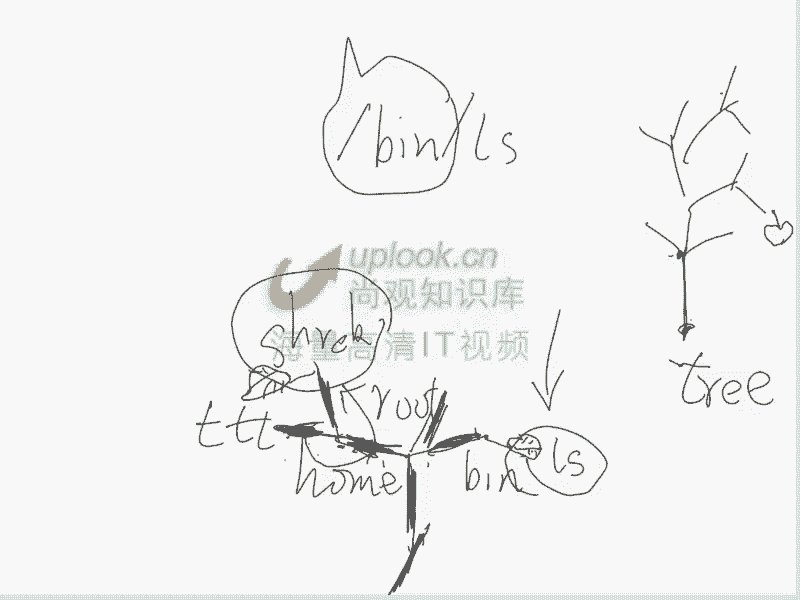 /bin/ls
uplook.cn
尚观知识库
海量高清IT视频
shrek
tree
root
ttt
home
bin
ls